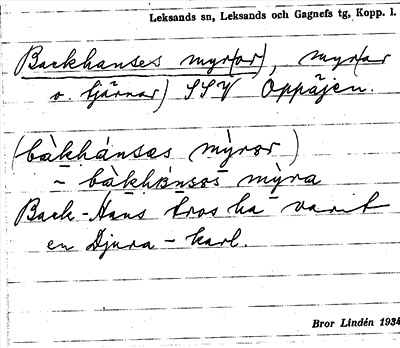 Leksands sn, Leksands och Gagnefs tg, Kopp. l.
Backhanses myr(or), myr(ar
o. tjärnar) SSV Oppåjen.
(bàkhánsas mỳror)
– bàkhánsos mỳra
Back-Hans tros ha varit
en Djura-karl.
Bror Lindén 1934